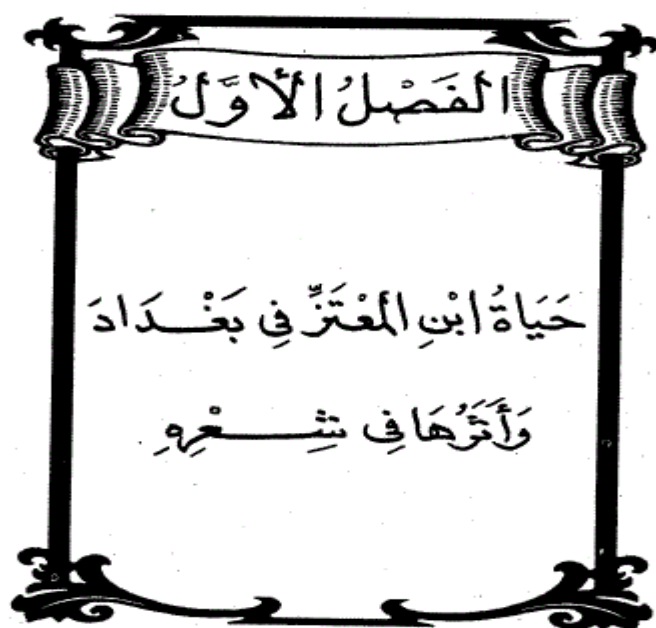 الفَصْلُ الأوَّلُ
حَيَاةُ ابْنِ المُعْتَزِّ فِي بَغْدَادَ
وَأَثَرُهَا فِي شِعْرِهِ